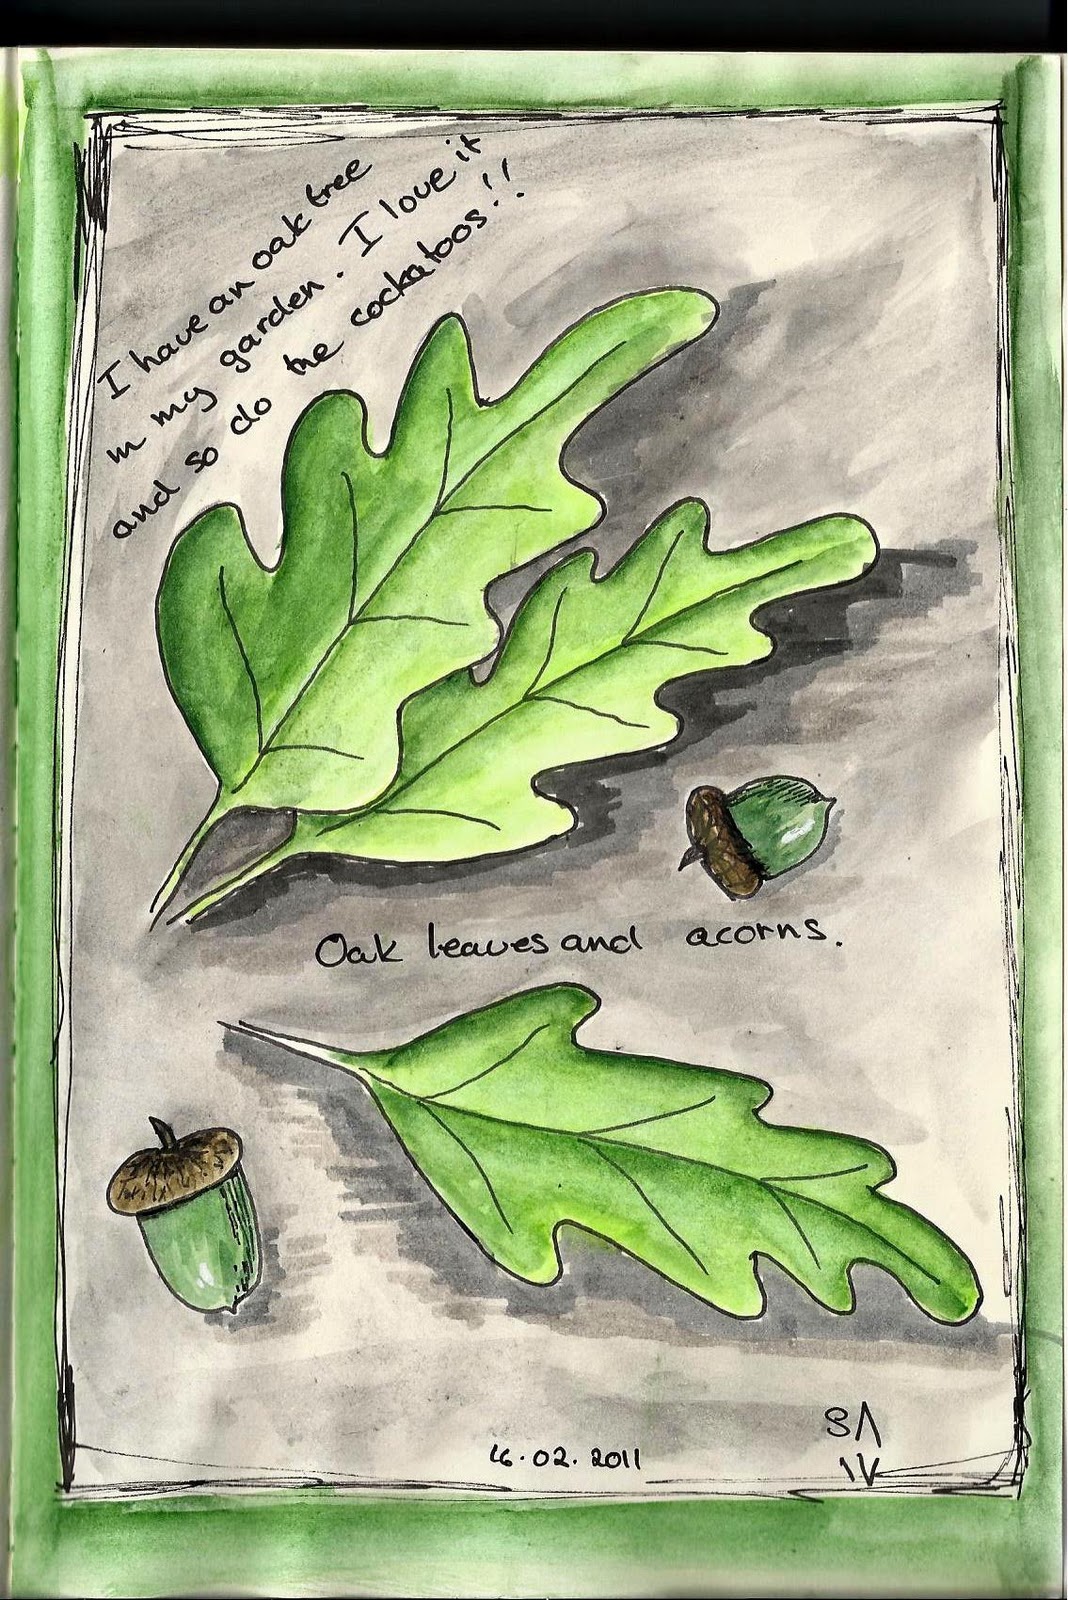 I have an oak tree
in my garden. I love it
and so do the cockatoos!!
Oak leaves and acorns.
16.02.2011